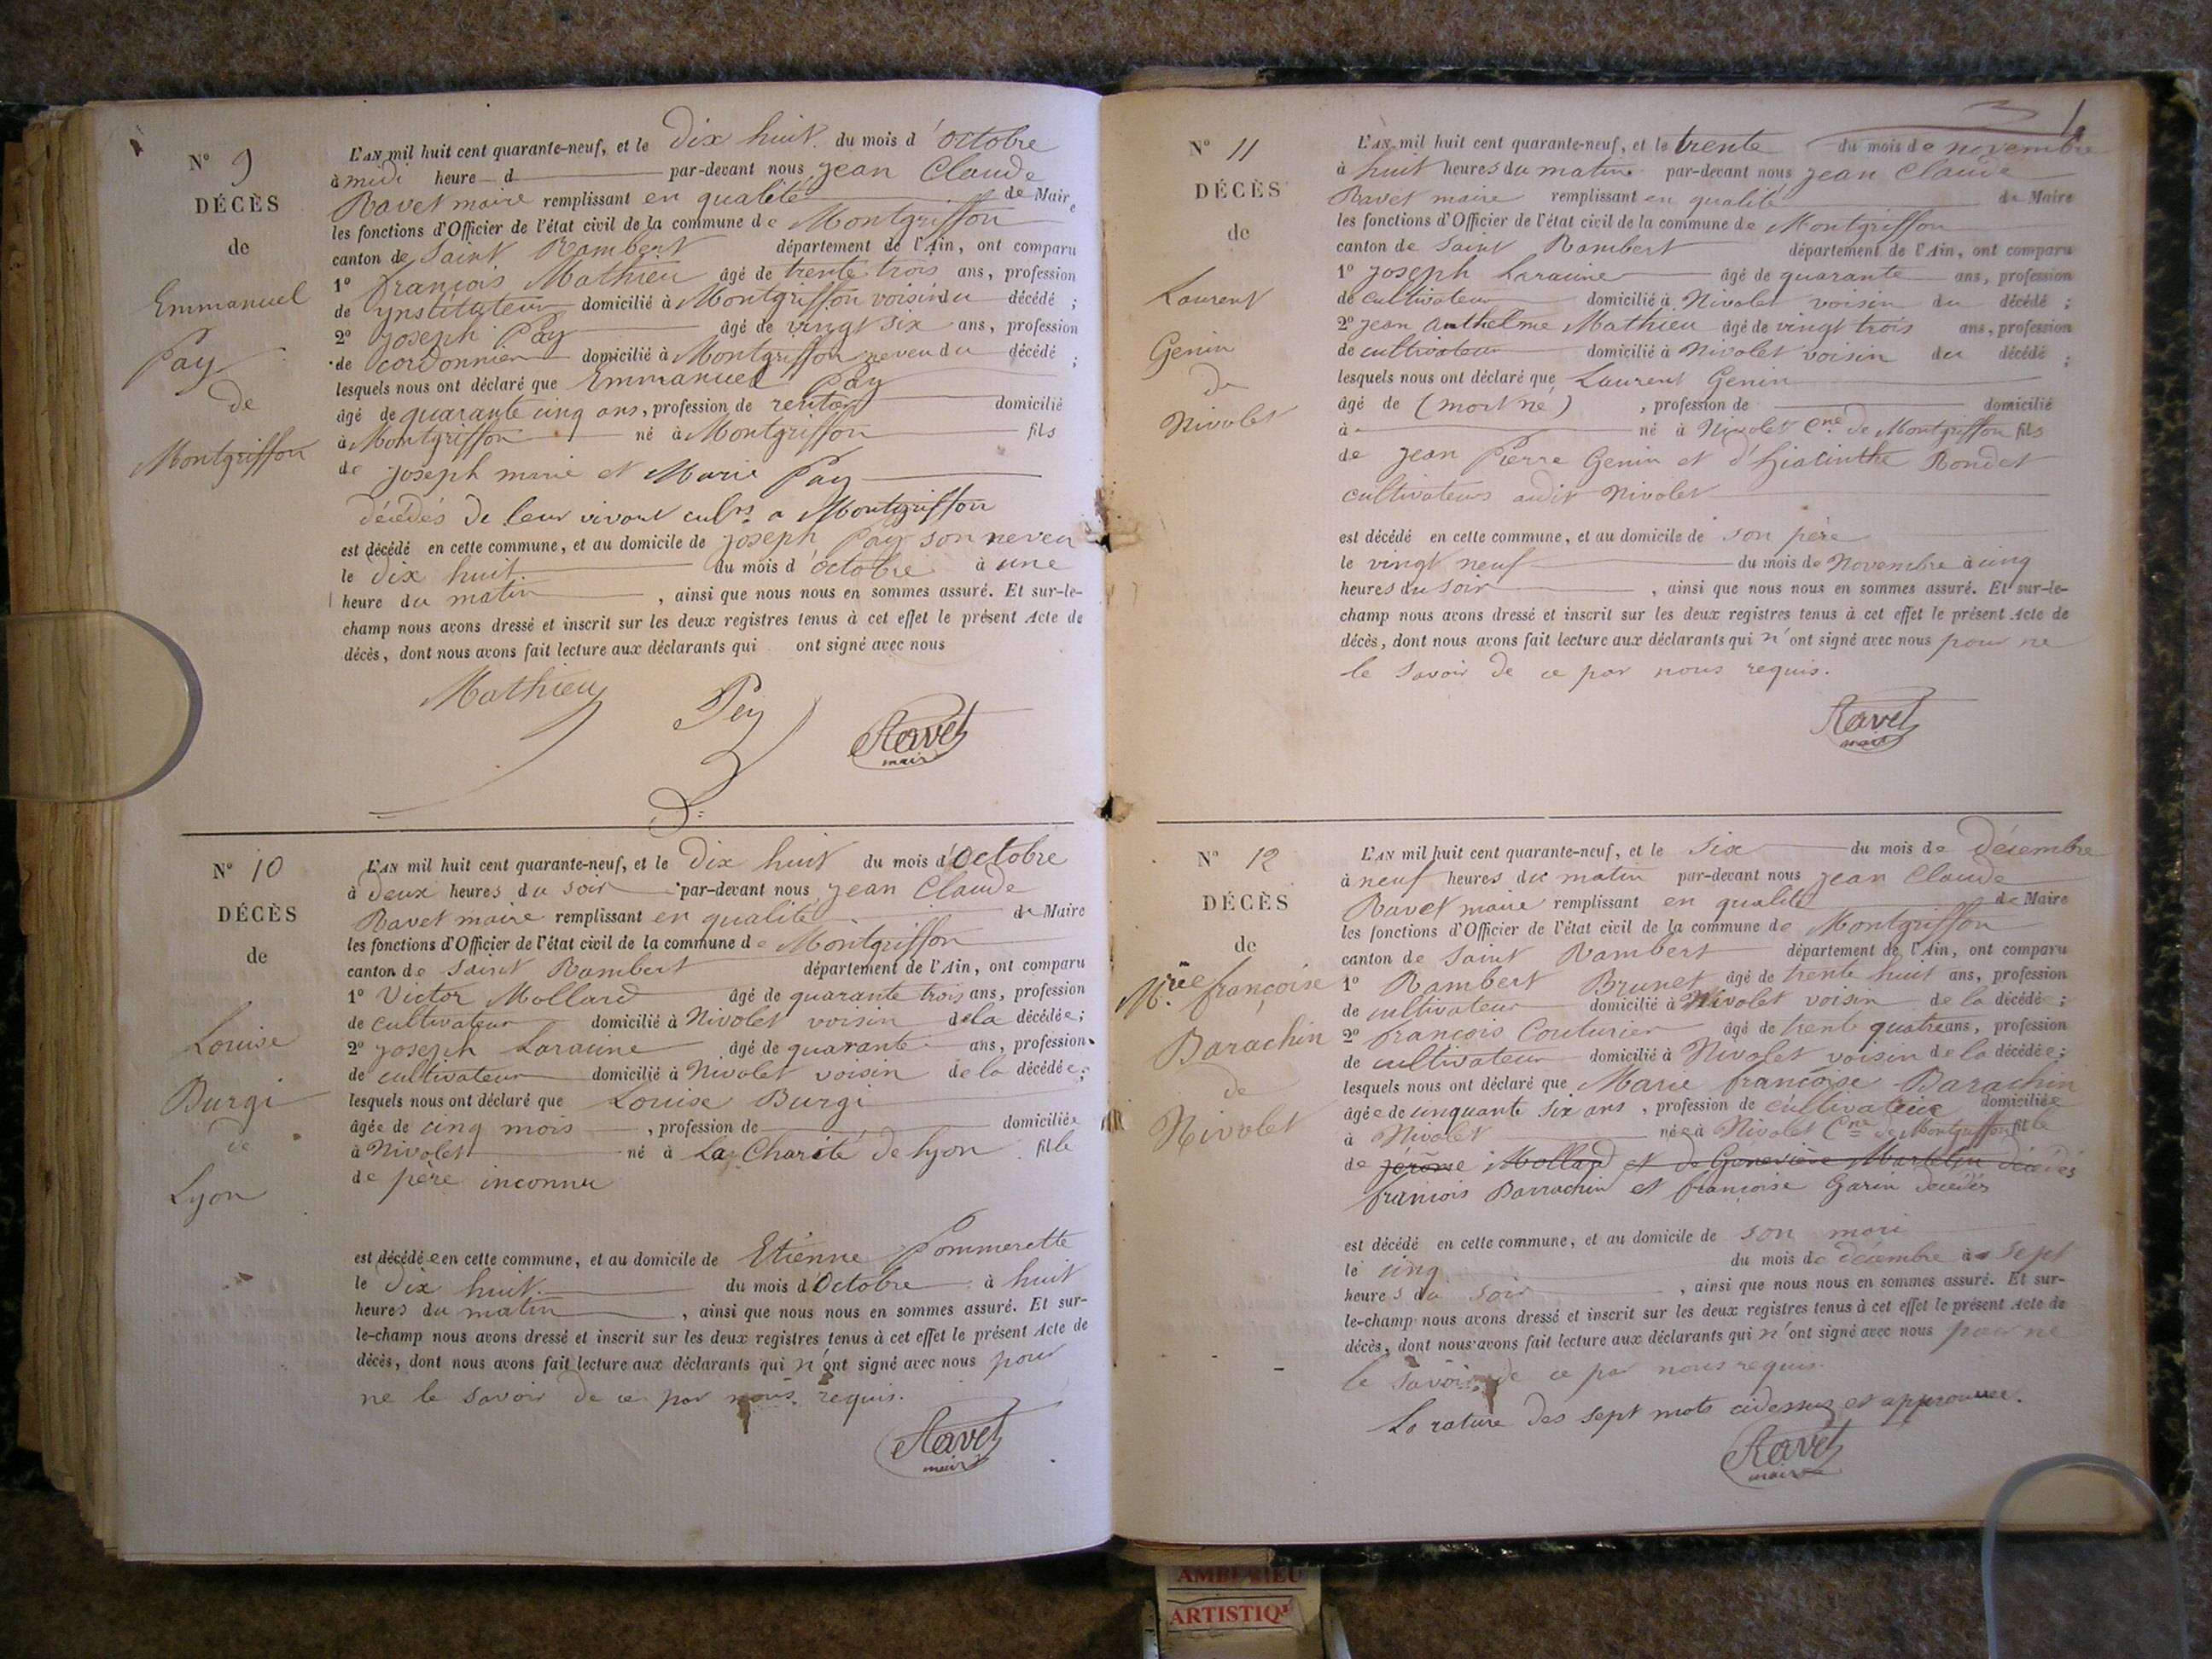 N° 9
DÉCÈS
de
Emmanuel
Pay
de
Montgriffon
L'AN mil huit cent quarante-neuf, et le dix huit du mois d'octobre
à midi heure d par-devant nous jean Claude
Ravet maire remplissant en qualité de Maire
les fonctions d'Officier de l'état civil de la commune de Montgriffon
canton de Saint Rambert département de l'Ain, ont comparu
1° françois Mathieu âgé de trente trois ans, profession
de ynstituteur domicilié à Montgriffon voisin du décédé ;
2° joseph Pay âgé de vingt six ans, profession
de cordonnier domicilié à Montgriffon neveu du décédé ;
lesquels nous ont déclaré que Emmanuel Pay
âgé de quarante cinq ans, profession de rentier domicilié
à Montgriffon né à Montgriffon fils
de joseph marie et Marie Pay
décédés de leur vivant culrs a Montgriffon
est décédé en cette commune, et au domicile de joseph Pay son neveu
le dix huit du mois d'octobre à une
heure du matin , ainsi que nous nous en sommes assuré. Et sur-le-
champ nous avons dressé et inscrit sur les deux registres tenus à cet effet le présent Acte de
décès, dont nous avons fait lecture aux déclarants qui ont signé avec nous
Mathieu Pey Ravet
maire
N° 10
DÉCÈS
de
Louise
Burgi
de
Lyon
L'AN mil huit cent quarante-neuf, et le dix huit du mois d'Octobre
à deux heures du soir par-devant nous jean Claude
Ravet maire remplissant en qualité de Maire
les fonctions d'Officier de l'état civil de la commune de Montgriffon
canton de Saint Rambert département de l'Ain, ont comparu
1° Victor Mollard âgé de quarante trois ans, profession
de cultivateur domicilié à Nivolet voisin de la décédée ;
2° joseph Laracine âgé de quarante ans, profession
de cultivateur domicilié à Nivolet voisin de la décédée ;
lesquels nous ont déclaré que Louise Burgi
âgée de cinq mois , profession de domiciliée
à Nivolet né à La Charité de Lyon fille
de père inconnu
est décédée en cette commune, et au domicile de Etienne Pommerette
le dix huit du mois d'Octobre à huit
heures du matin , ainsi que nous nous en sommes assuré. Et sur-
le-champ nous avons dressé et inscrit sur les deux registres tenus à cet effet le présent Acte de
décès, dont nous avons fait lecture aux déclarants qui n'ont signé avec nous pour
ne le savoir de ce par nous requis.
Ravet
maire
N° 11
DÉCÈS
de
Laurent
Genin
de
Nivolet
L'AN mil huit cent quarante-neuf, et le trente du mois de novembre
à huit heures du matin par-devant nous jean Claude
Ravet maire remplissant en qualité de Maire
les fonctions d'Officier de l'état civil de la commune de Montgriffon
canton de Saint Rambert département de l'Ain, ont comparu
1° joseph Laracine âgé de quarante ans, profession
de cultivateur domicilié à Nivolet voisin du décédé ;
2° jean Anthelme Mathieu âgé de vingt trois ans, profession
de cultivateur domicilié à Nivolet voisin du décédé ;
lesquels nous ont déclaré que Laurent Genin
âgé de (mort né) , profession de domicilié
à né à Nivolet Cne de Montgriffon fils
de jean Pierre Genin et d'hiacinthe Rondet
cultivateurs audit Nivolet
est décédé en cette commune, et au domicile de son père
le vingt neuf du mois de Novembre à cinq
heures du soir , ainsi que nous nous en sommes assuré. Et sur-le-
champ nous avons dressé et inscrit sur les deux registres tenus à cet effet le présent Acte de
décès, dont nous avons fait lecture aux déclarants qui n'ont signé avec nous pour ne
le savoir de ce par nous requis.
Ravet
maire
N° 12
DÉCÈS
de
Mrie françoise
Barachin
de
Nivolet
L'AN mil huit cent quarante-neuf, et le six du mois de décembre
à neuf heures du matin par-devant nous jean Claude
Ravet maire remplissant en qualité de Maire
les fonctions d'Officier de l'état civil de la commune de Montgriffon
canton de Saint Rambert département de l'Ain, ont comparu
1° Rambert Brunet âgé de trente huit ans, profession
de cultivateur domicilié à Nivolet voisin de la décédée ;
2° françois Couturier âgé de trente quatre ans, profession
de cultivateur domicilié à Nivolet voisin de la décédée ;
lesquels nous ont déclaré que Marie françoise Barachin
âgée de cinquante six ans , profession de cultivatrice domiciliée
à Nivolet née à Nivolet Cne de Montgriffon fille
de jérôme Mollard et de Geneviève Martelin décédés
françois Barrachin et françoise Garin décédés
est décédé en cette commune, et au domicile de son mari
le cinq du mois de décembre à sept
heures du soir , ainsi que nous nous en sommes assuré. Et sur-
le-champ nous avons dressé et inscrit sur les deux registres tenus à cet effet le présent Acte de
décès, dont nous avons fait lecture aux déclarants qui n'ont signé avec nous pour ne
le savoir de ce par nous requis.
La rature des sept mots cidessus est approuvée.
Ravet
maire
ARTISTIQ